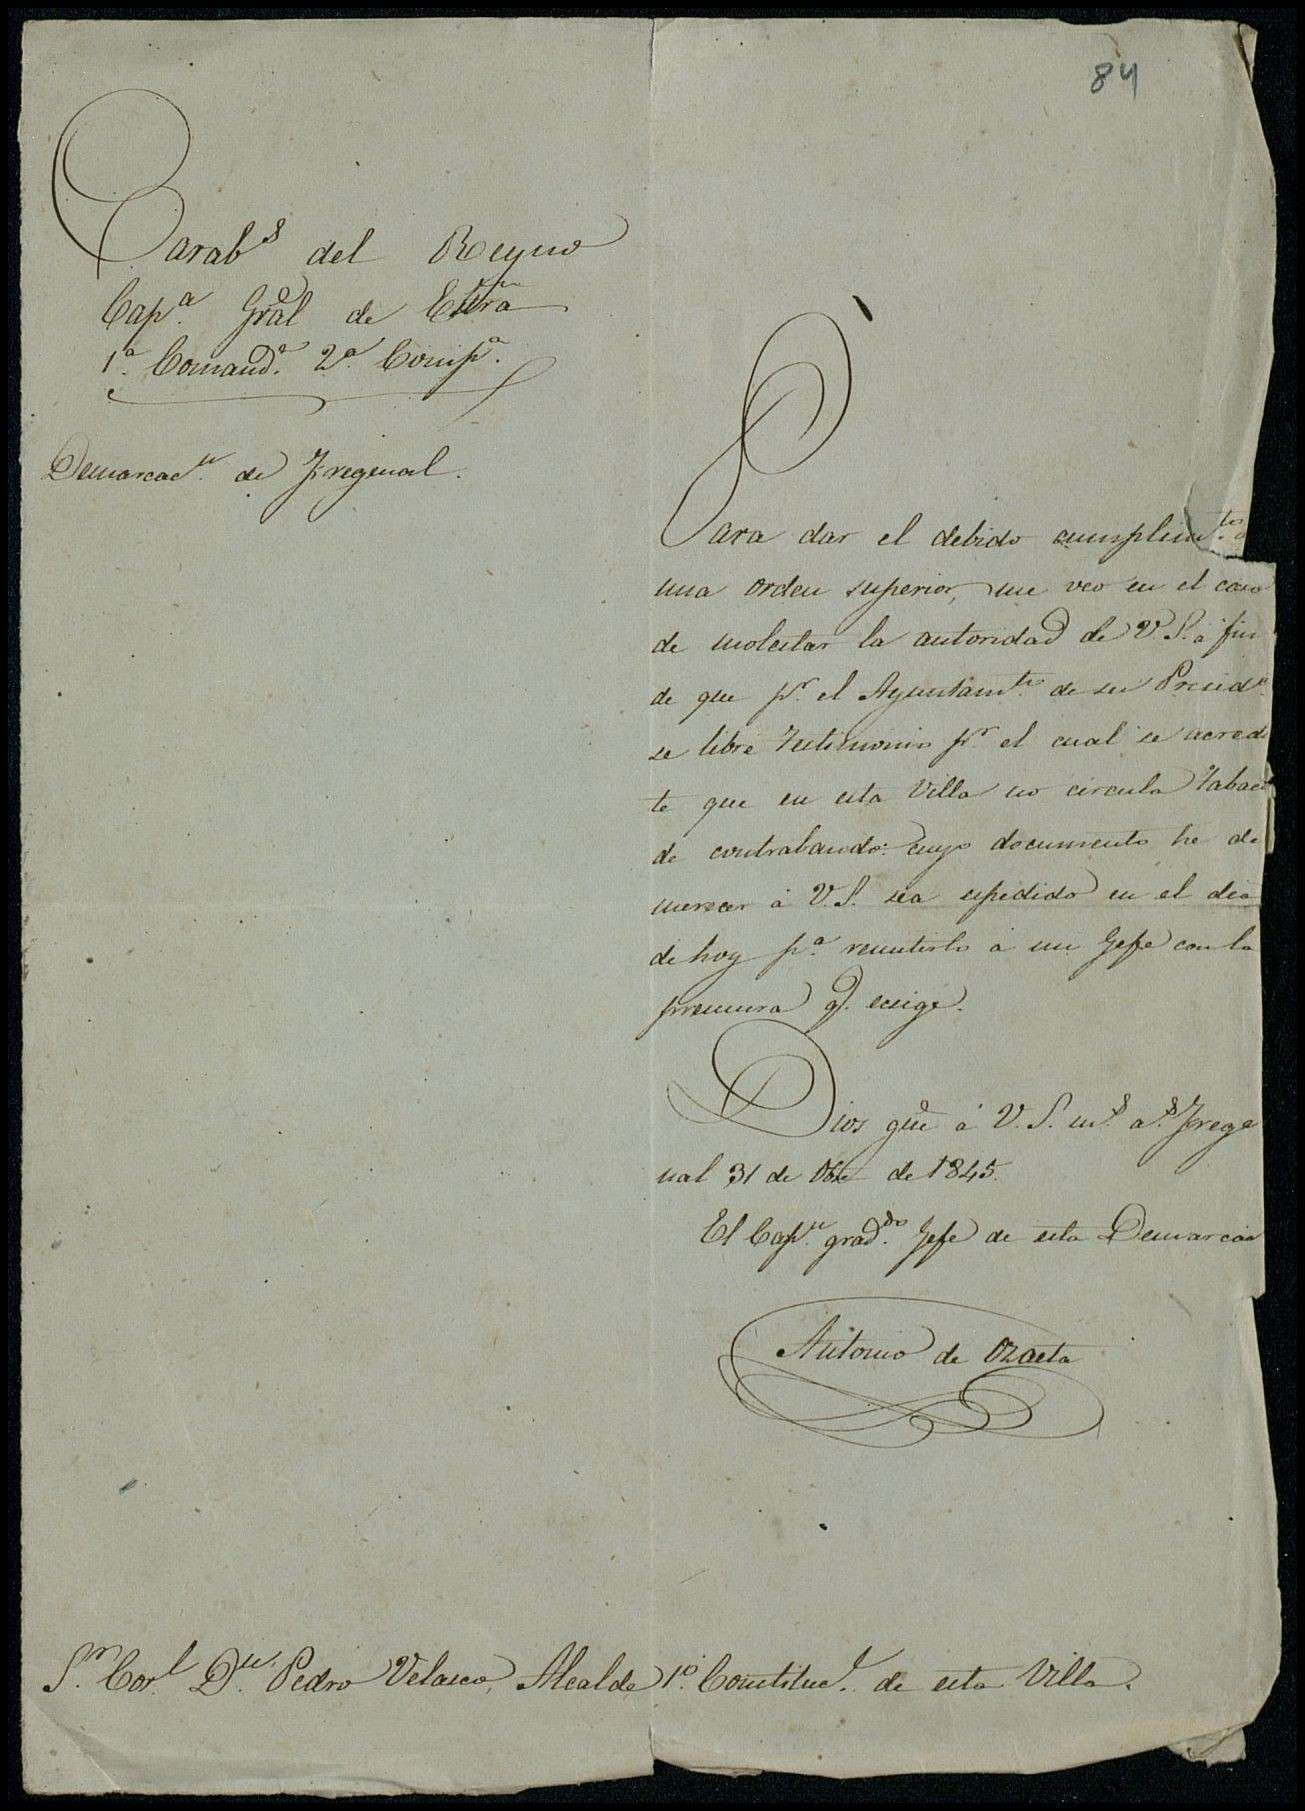 84
Carab.s del Reyno
Cap.a Gral de Estra
1.a Comand.a 2.a Comp.a
Demarcac.n de Fregenal.
Para dar el debido cumplim.to a
una orden superior, me veo en el caso
de molestar la autoridad de V.S. á fin
de que p.r el Ayuntam.to de su Presid.a
se libre Testimonio p.r el cual se acredi
te que en esta Villa no circula Tabaco
de contrabando: cuyo documento he de
merecer á V.S. sea espedido en el dia
de hoy p.a remitirlo á mi Gefe con la
premura q.e ecsige.
Dios gue á V.S. m.s a.s Frege
nal 31 de Obre de 1845.
El Cap.n grad.do Jefe de esta Demarcac
Antonio de Ozaeta
S.r Cor.l D.n Pedro Velasco, Alcalde 1.o Constituc.l de esta Villa.